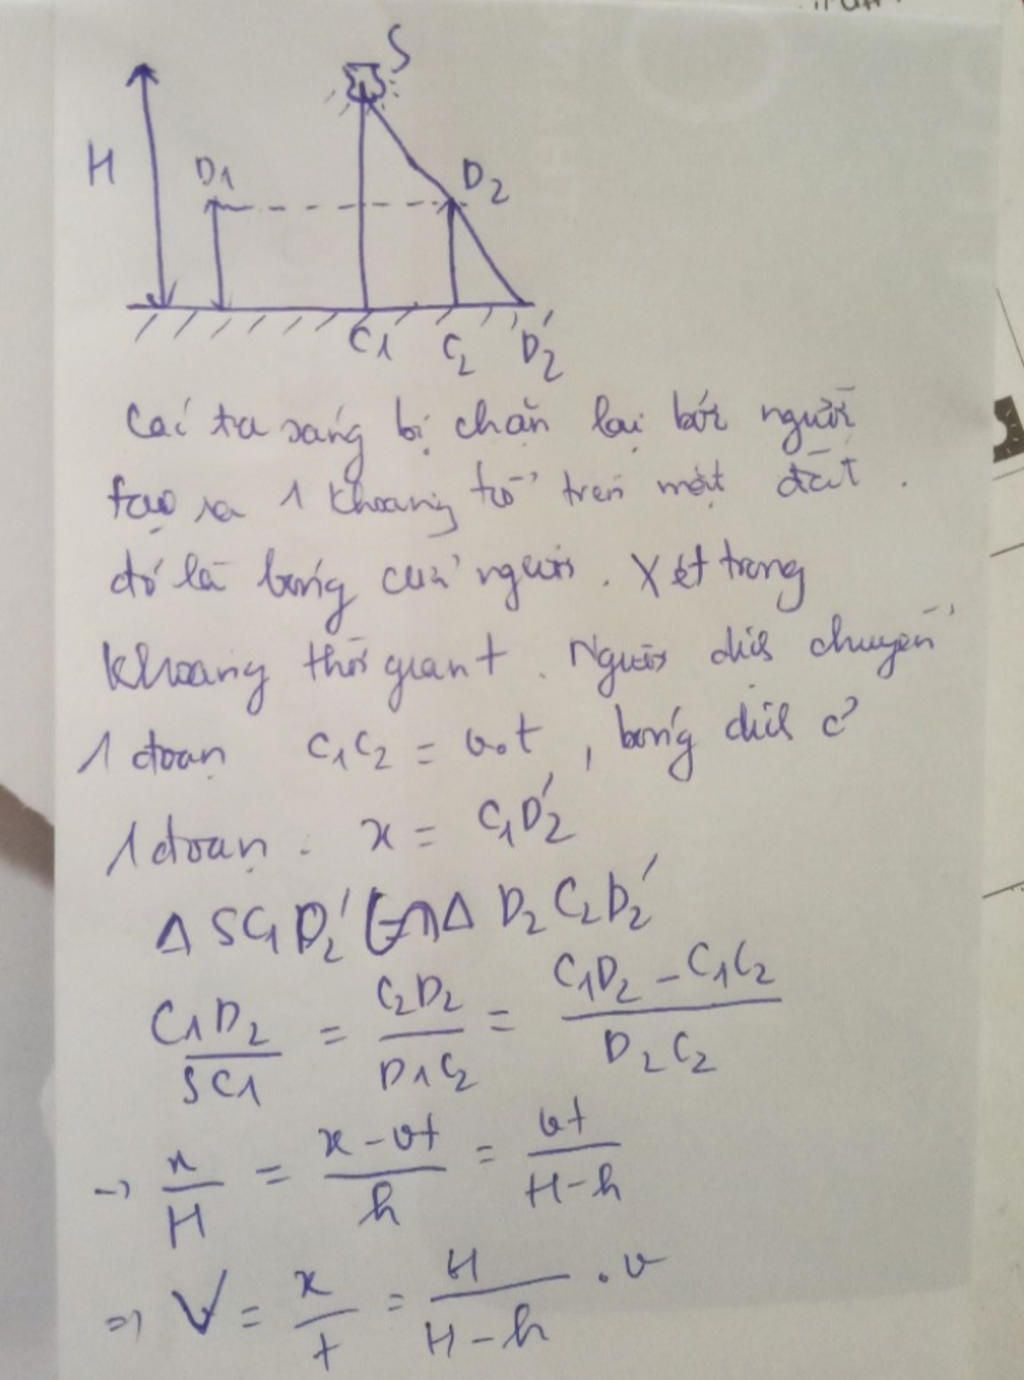 S
H
D1
D2
C1 C2 D2'
Các tia sáng bị chặn lại bởi người
tạo ra 1 khoảng tối trên mặt đất.
đó là bóng của người. Xét trong
khoảng thời gian t. Người dịch chuyển
1 đoạn C1C2 = v.t, bóng dịch c
1 đoạn. x = C1D2'
Δ SC1D2' Δ D2C2D2'
C1D2/SC1 = C2D2/D1C2 = (C1D2 - C1C2)/D2C2
-> x/H = (x - vt)/h = vt/(H-h)
=> V = x/t = H/(H-h) . v